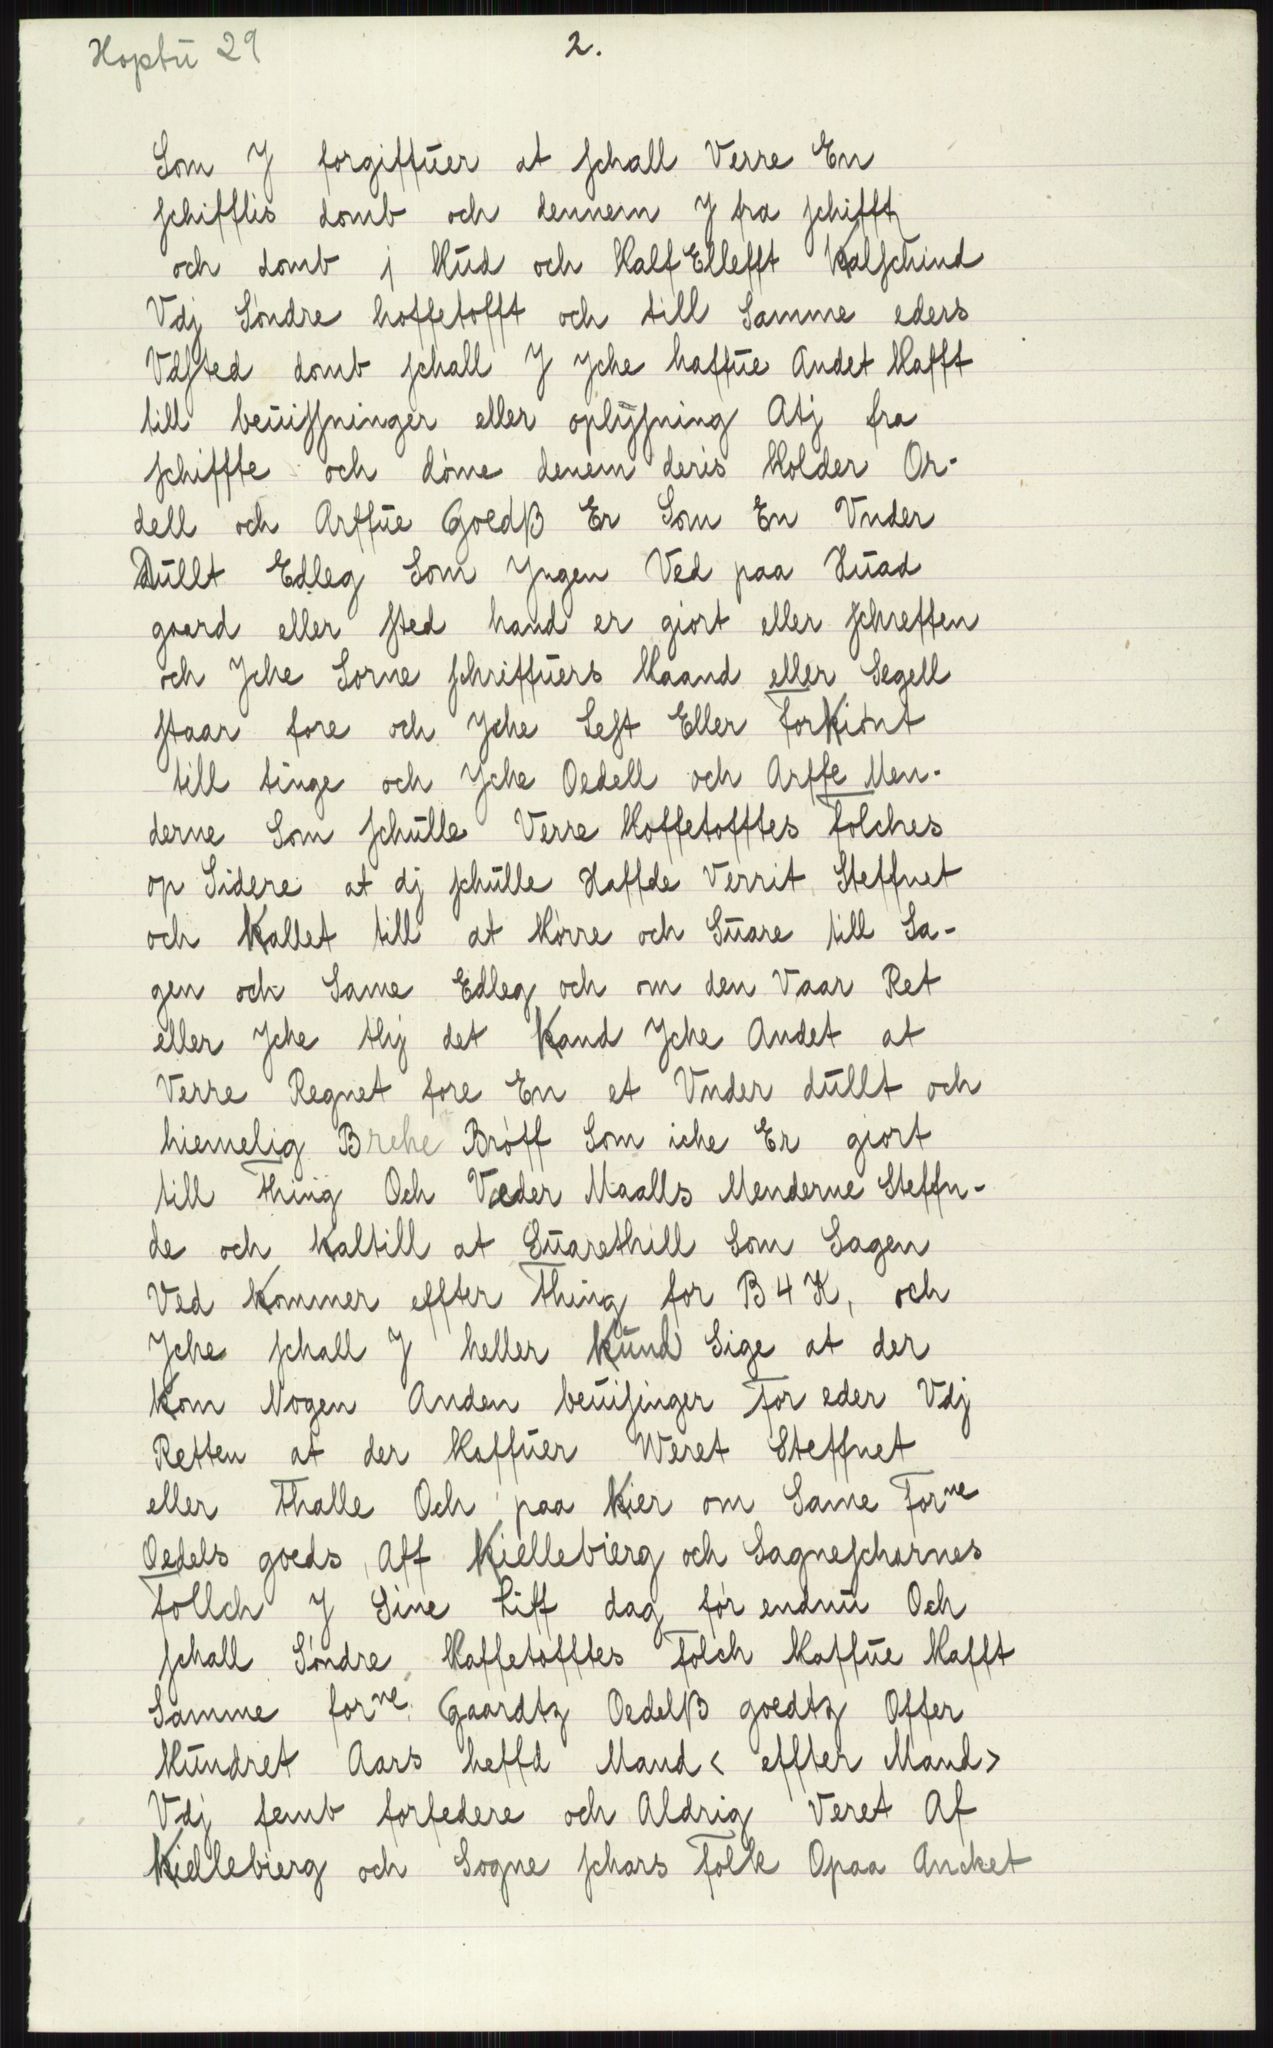 Hoptu 29
2.
Som J forgiffuer at schall Verre En
schifflis domb och dennem J fra schifft
och domb j Hud och Half Ellefft Kalschind
Vdj Söndre hoffetofft och till Samme eders
Vdsted domb schall J Jche haffue Andet Hafft
till beuissninger eller oplÿsning Atj fra
schiffte och döme denem deris Holder Or-
dell och Arffue Goedß Er Som En Vnder
Dullt Edleg Som Jngen Ved paa Huad
gaard eller sted hand er giort eller schreffen
och Jche Sorne schriffuers Haand eller Segell
staar fore och Jche Lest Eller Forkiönt
till tinge och Jche Oedell och Arffe Men-
derne Som schulle Verre Hoffetofftes Folches
op Sidere at dj schulle Haffde Verrit Steffnet
och Kallet till at Hörre och Suare till Sa-
gen och Same Edleg och om den Vaar Ret
eller Jche thj det Kand Jche Andet at
Verre Regnet fore En et Vnder dullt och
hiemelig Brehe Bröff Som iche Er giort
till Thing Och Væder Maalls Menderne Steffn-
de och kaltill at Suarethill Som Sagen
Ved Kommer effter Thing for B 4 K, och
Jche schall J heller Kund Sige at der
Kom Nogen Anden beuisinger For eder Vdj
Retten at der Haffuer Weret Steffnet
eller Thalle Och paa Kier om Same Forne
Oedels goeds Aff Kiellebierg och Sagnescharnes
Follch J Sine Liff dag för endnu Och
schall Söndre Haffetofftes Folch Haffue Hafft
Samme forne Gaardtz Oedelß goedtz Offer
Hundret Aars heffd Mand < effter Mand >
Vdj femb forfedere och Aldrig Veret Af
Kiellebierg och Sogne schars Folk Opaa Ancket